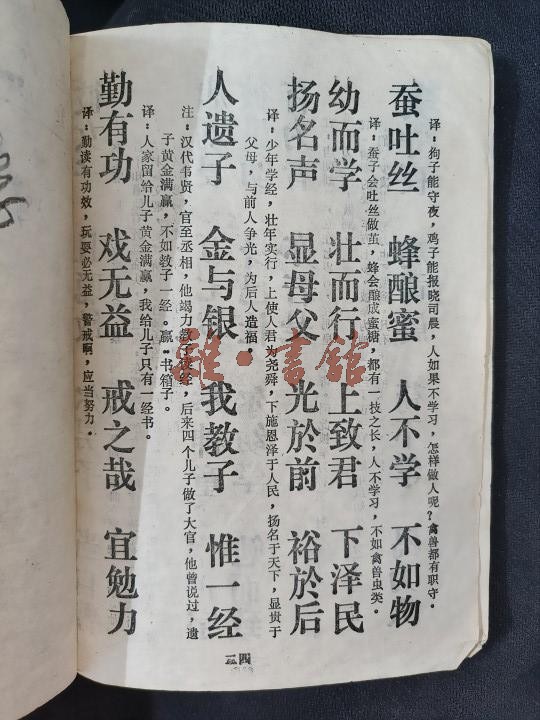 译：狗子能守夜，鸡子能报晓司晨，人如果不学习，怎样做人呢？禽兽都有职守。
蚕吐丝 蜂酿蜜 人不学 不如物
译：蚕子会吐丝做茧，蜂会酿成蜜糖，都有一技之长，人不学习，不如禽兽虫类。
幼而学 壮而行 上致君 下泽民
扬名声 显母父 光於前 裕於后
译：少年学经，壮年实行，上使人君为尧舜，下施恩泽于人民，扬名于天下，显贵于
父母，与前人争光，为后人造福。
人遗子 金与银 我教子 惟一经
注：汉代韦贤，官至丞相，他竭力教子读经，后来四个儿子做了大官，他曾说过，遗
子黄金满赢，不如教子一经。赢·书箱子。
译：人家留给儿子黄金满赢，我给儿子只有一经书。
勤有功 戏无益 戒之哉 宜勉力
译：勤读有功效，玩耍必无益，警戒啊，应当努力。
书馆